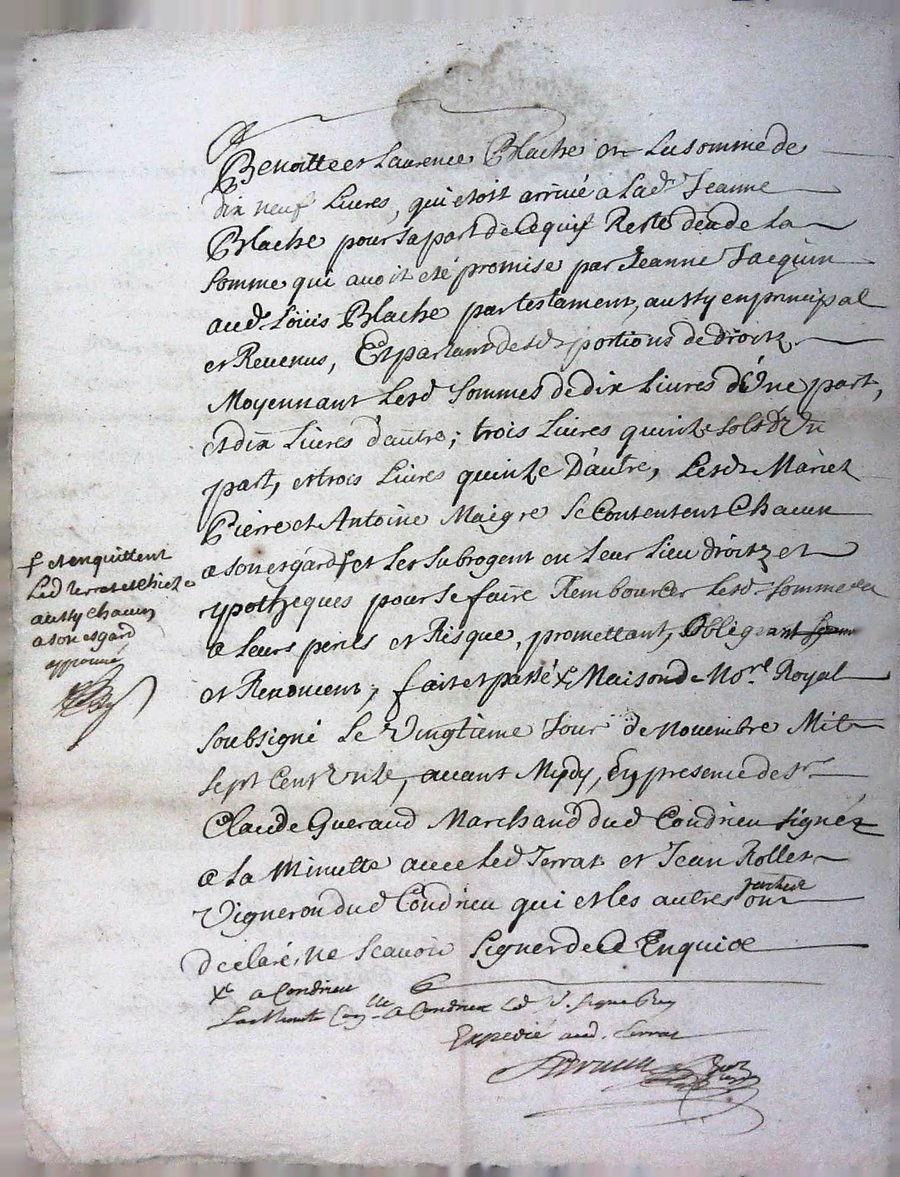 Benoitte et Laurence Blache en La somme de
dix neuf Livres, qui etoit arrivé a Lad. Jeanne
Blache pour sa part de Ce qui Reste deu de La
somme qui avoit eté promise par Jeanne Jacquin
aud. Loüis Blache par testament, aussy en principal
et Revenus, Et partant desd. portions de droitz
Moyennant Lesd. Sommes de dix Livres d'Une part,
et dix Livres d'autre; trois Livres quinze sols d'Un
part, et trois Livres quinze D'autre, Lesd. Mariez
Pierre et Antoine Maigre Se Contentent Chacun
a son esgard et Les Subrogent en Leur Lieu droitz et
ypotheques pour se faire Rembourcer Lesd. sommes
a Leurs perils et Risque, promettant, obligeant
et Renoncent, fait et passé Maison de No.re Royal
soubsigné Le Vingtieme Jour de novembre Mil
sept Cent avant Mydy, En presence de Sr
Claude Gueraud Marchand dud. Condrieu signéz
a La Minutte avec Led. Terrat et Jean Rollet
Vigneron dud. Condrieu qui et les autres parties ont
declaré Ne Scavoir Signer de Ce Enquis
a Condrieu
La Minutte a Condrieu
Expedié aud. Terrat
f et en quittent
Led. Terrat et
aussy Chacun
a son esgard
approuvé